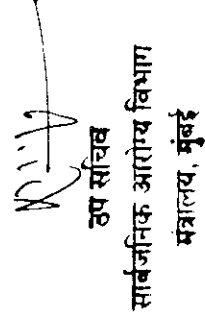 उप सचिव
सार्वजनिक आरोग्य विभाग
मंत्रालय, मुंबई